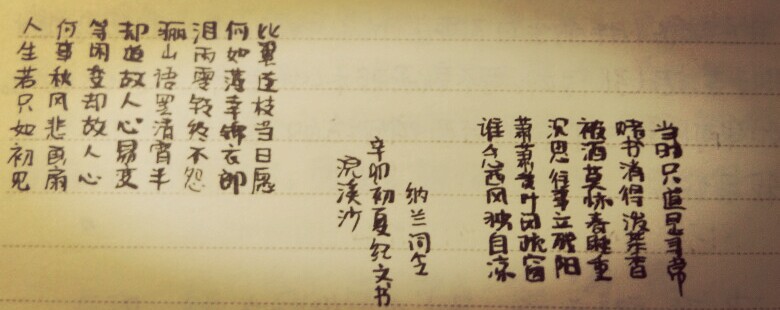 人生若只如初见
何事秋风悲画扇
等闲变却故人心
却道故人心易变
骊山语罢清宵半
泪雨零铃终不怨
何如薄幸锦衣郎
比翼连枝当日愿
浣溪沙
辛卯初夏纪文书
纳兰
谁念西风独自凉
萧萧黄叶闭疏窗
沉思往事立残阳
被酒莫惊春睡重
赌书消得泼茶香
当时只道是寻常